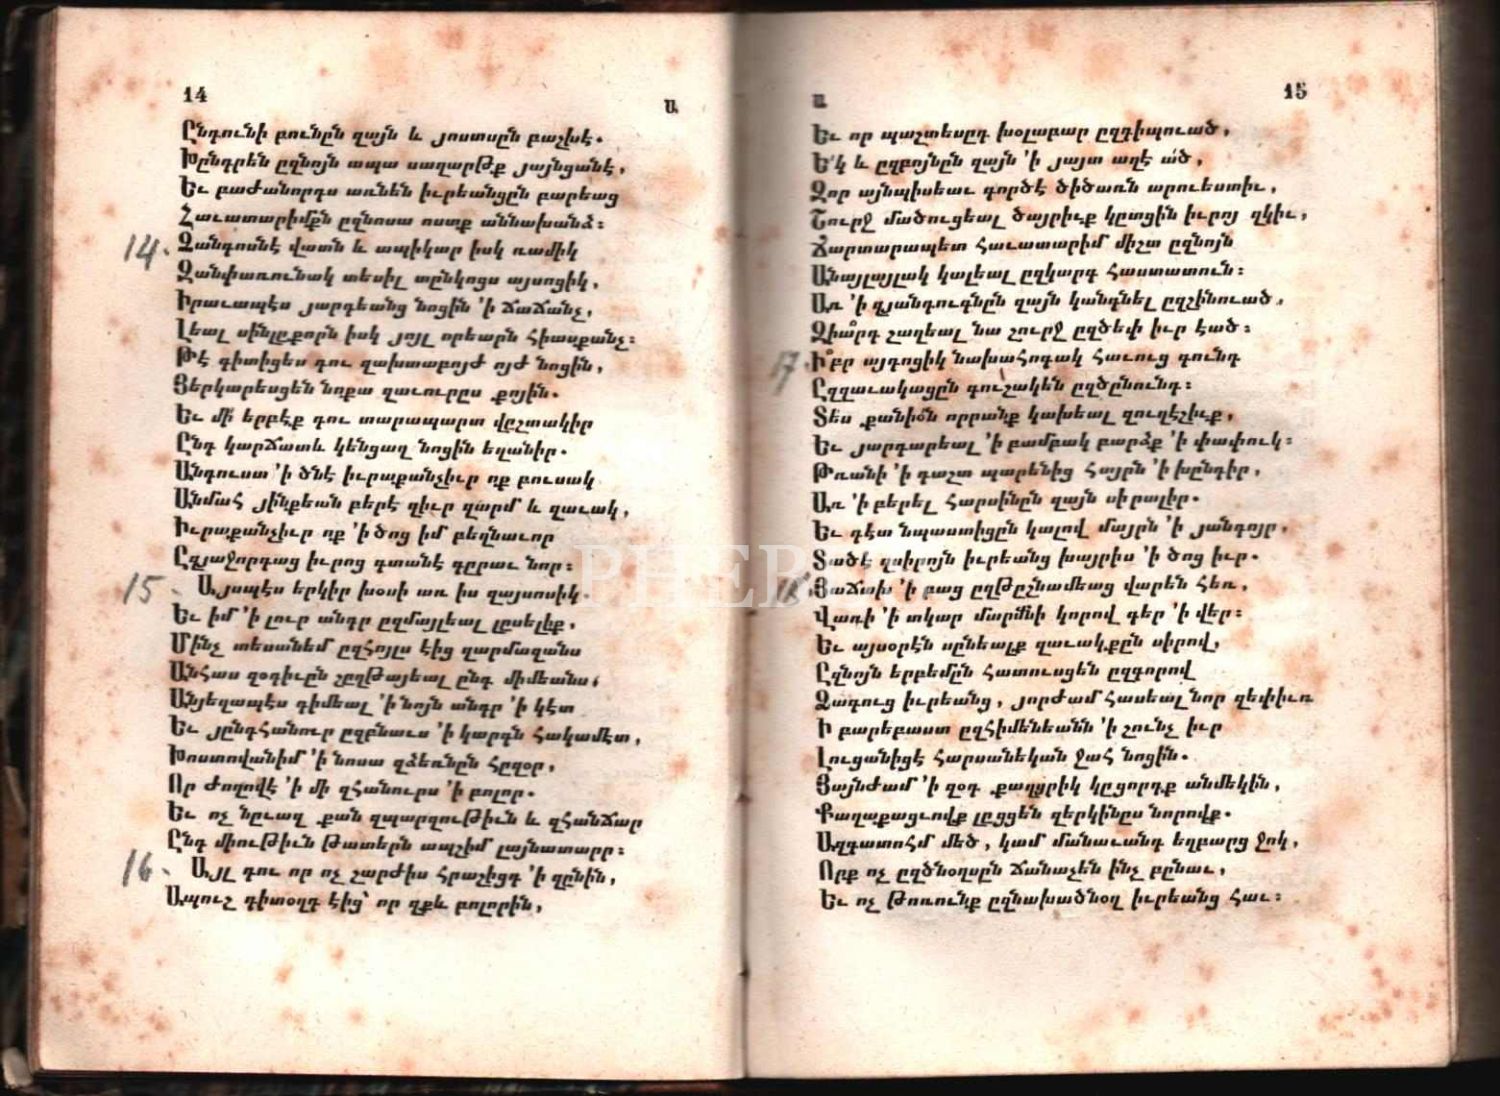 14
Ա
Ընդունի բունըն զայն և յոստսըն բաշխէ.
Խընդրեն ըզնոյն ապա սաղարթք յայնցանէ,
Եւ բաժանորդս առնեն իւրեանցըն բարեաց
Հաւատարիմքն ըզնոսա ոստք աննախանձ։
14. Զանգոսնէ վատն և ապիկար իսկ ռամիկ
Զանփառունակ տեսիլ տընկոցս այսոցիկ,
Իրաւապէս յարդեանց նոցին ՚ի ճաճանչ,
Լեալ սինլըքորն իսկ յոյլ որեարն հիասքանչ։
Թէ գիտիցես դու զախտաբոյժ ոյժ նոցին,
Յերկարեսցեն նոքա զաւուրըս քոյին.
Եւ մի երբէք դու տարապարտ վըշտակիր
Ընդ կարճատև կենցաղ նոցին եղանիր.
Անդուստ ՚ի ծնէ իւրաքանչիւր ոք բուսակ
Անմահ յինքեան բերէ զիւր զարմ և զաւակ,
Իւրաքանչիւր ոք ՚ի ծոց իմ բեղնաւոր
Ըզյաջորդաց իւրոց գտանէ գըրաւ նոր։
15. Այսպէս երկիր խօսի առ իս զայսոսիկ.
Եւ իմ ՚ի լուր անդր ըզմայլեալ լըսելիք,
Մինչ տեսանեմ ըզհոյլս էից զարմազանս
Անհաս զօդիւըն շըղթայեալ ընդ միմեանս,
Անյեղապէս դիմեալ ՚ի նոյն անդր ՚ի կէտ
Եւ յընդհանուր ըզբնաւս ՚ի կարգն հակամէտ,
Խոստովանիմ ՚ի նոսա զձեռնըն հըզօր,
Որ ժողովէ ՚ի մի զհանուրս ՚ի բոլոր.
Եւ ոչ նըւազ քան զպարզութիւն և զհանճար
Ընդ միութիւն թատերն ապշիմ լայնատարր։
16. Այլ դու որ ոչ շարժիս հրաշիցդ ՚ի զընին,
Ապուշ դիտօղդ էից՝ որ զքև բոլորին,
Ա
15
Եւ որ պաշտեսըդ խօլաբար ըզդիպուած,
Ե՛կ և ըզբոյնըն զայն ՚ի յայտ ածէ ած,
Զոր այնպիսեաւ գործէ ծիծառն արուեստիւ,
Շուրջ մածուցեալ ծայրիւք կըտցին իւրոյ զկիւ,
Ճարտարապետ հաւատարիմ միշտ ըզնոյն
Անայլայլակ կալեալ ըզկարգ հաստատուն։
Առ ՚ի զյանդուգնըն զայն կանգնել ըզշինուած,
Զիա՞րդ շաղեալ նա շուրջ ըզծեփ իւր էած։
17. Ի՞բր այդոցիկ նախահոգակ հաւուց գունդ
Ըզզաւակացըն գուշակեն ըզծընունդ։
Տես քանիօն որրանք կախեալ զուղէշիւք,
Եւ յարդարեալ ՚ի բամբակ բարձք ՚ի փափուկ։
Թռանի ՚ի դաշտ պարենից հայրն ՚ի խընդիր,
Առ ՚ի բերել հարսինըն զայն սիրալիր.
Եւ դէտ նպաստիցըն կալով մայրն ՚ի յանդոյր,
Տածէ զսիրոյն իւրեանց խայրիս ՚ի ծոց իւր.
18. Յաճախ ՚ի բաց ըզթըշնամեաց վարեն հեռ,
Վառի ՚ի տկար մարմնի կորով գեր ՚ի վեր։
Եւ այսօրէն սընեալք զաւակքըն սիրով,
Ըզնոյն երբեմըն հատուսցեն ըզգորով
Զագուց իւրեանց, յորժամ հասեալ նոր զեփիւռ
Ի բարեբաստ ըզհիմենեանն ՚ի շունչ իւր
Լուցանիցէ հարսանեկան ջահ նոցին.
Յայնժամ ՚ի զօդ քաղցրիկ կըցորդք անմեկին,
Քաղաքացւովք լըցցեն զերկինըս նորովք.
Ազգատոհմ մեծ, կամ մանաւանդ եղբարց ջոկ,
Որք ոչ ըզծնօղսըն ճանաչեն ինչ բընաւ,
Եւ ոչ թոռունք ըզնախածնօղ իւրեանց հաւ։